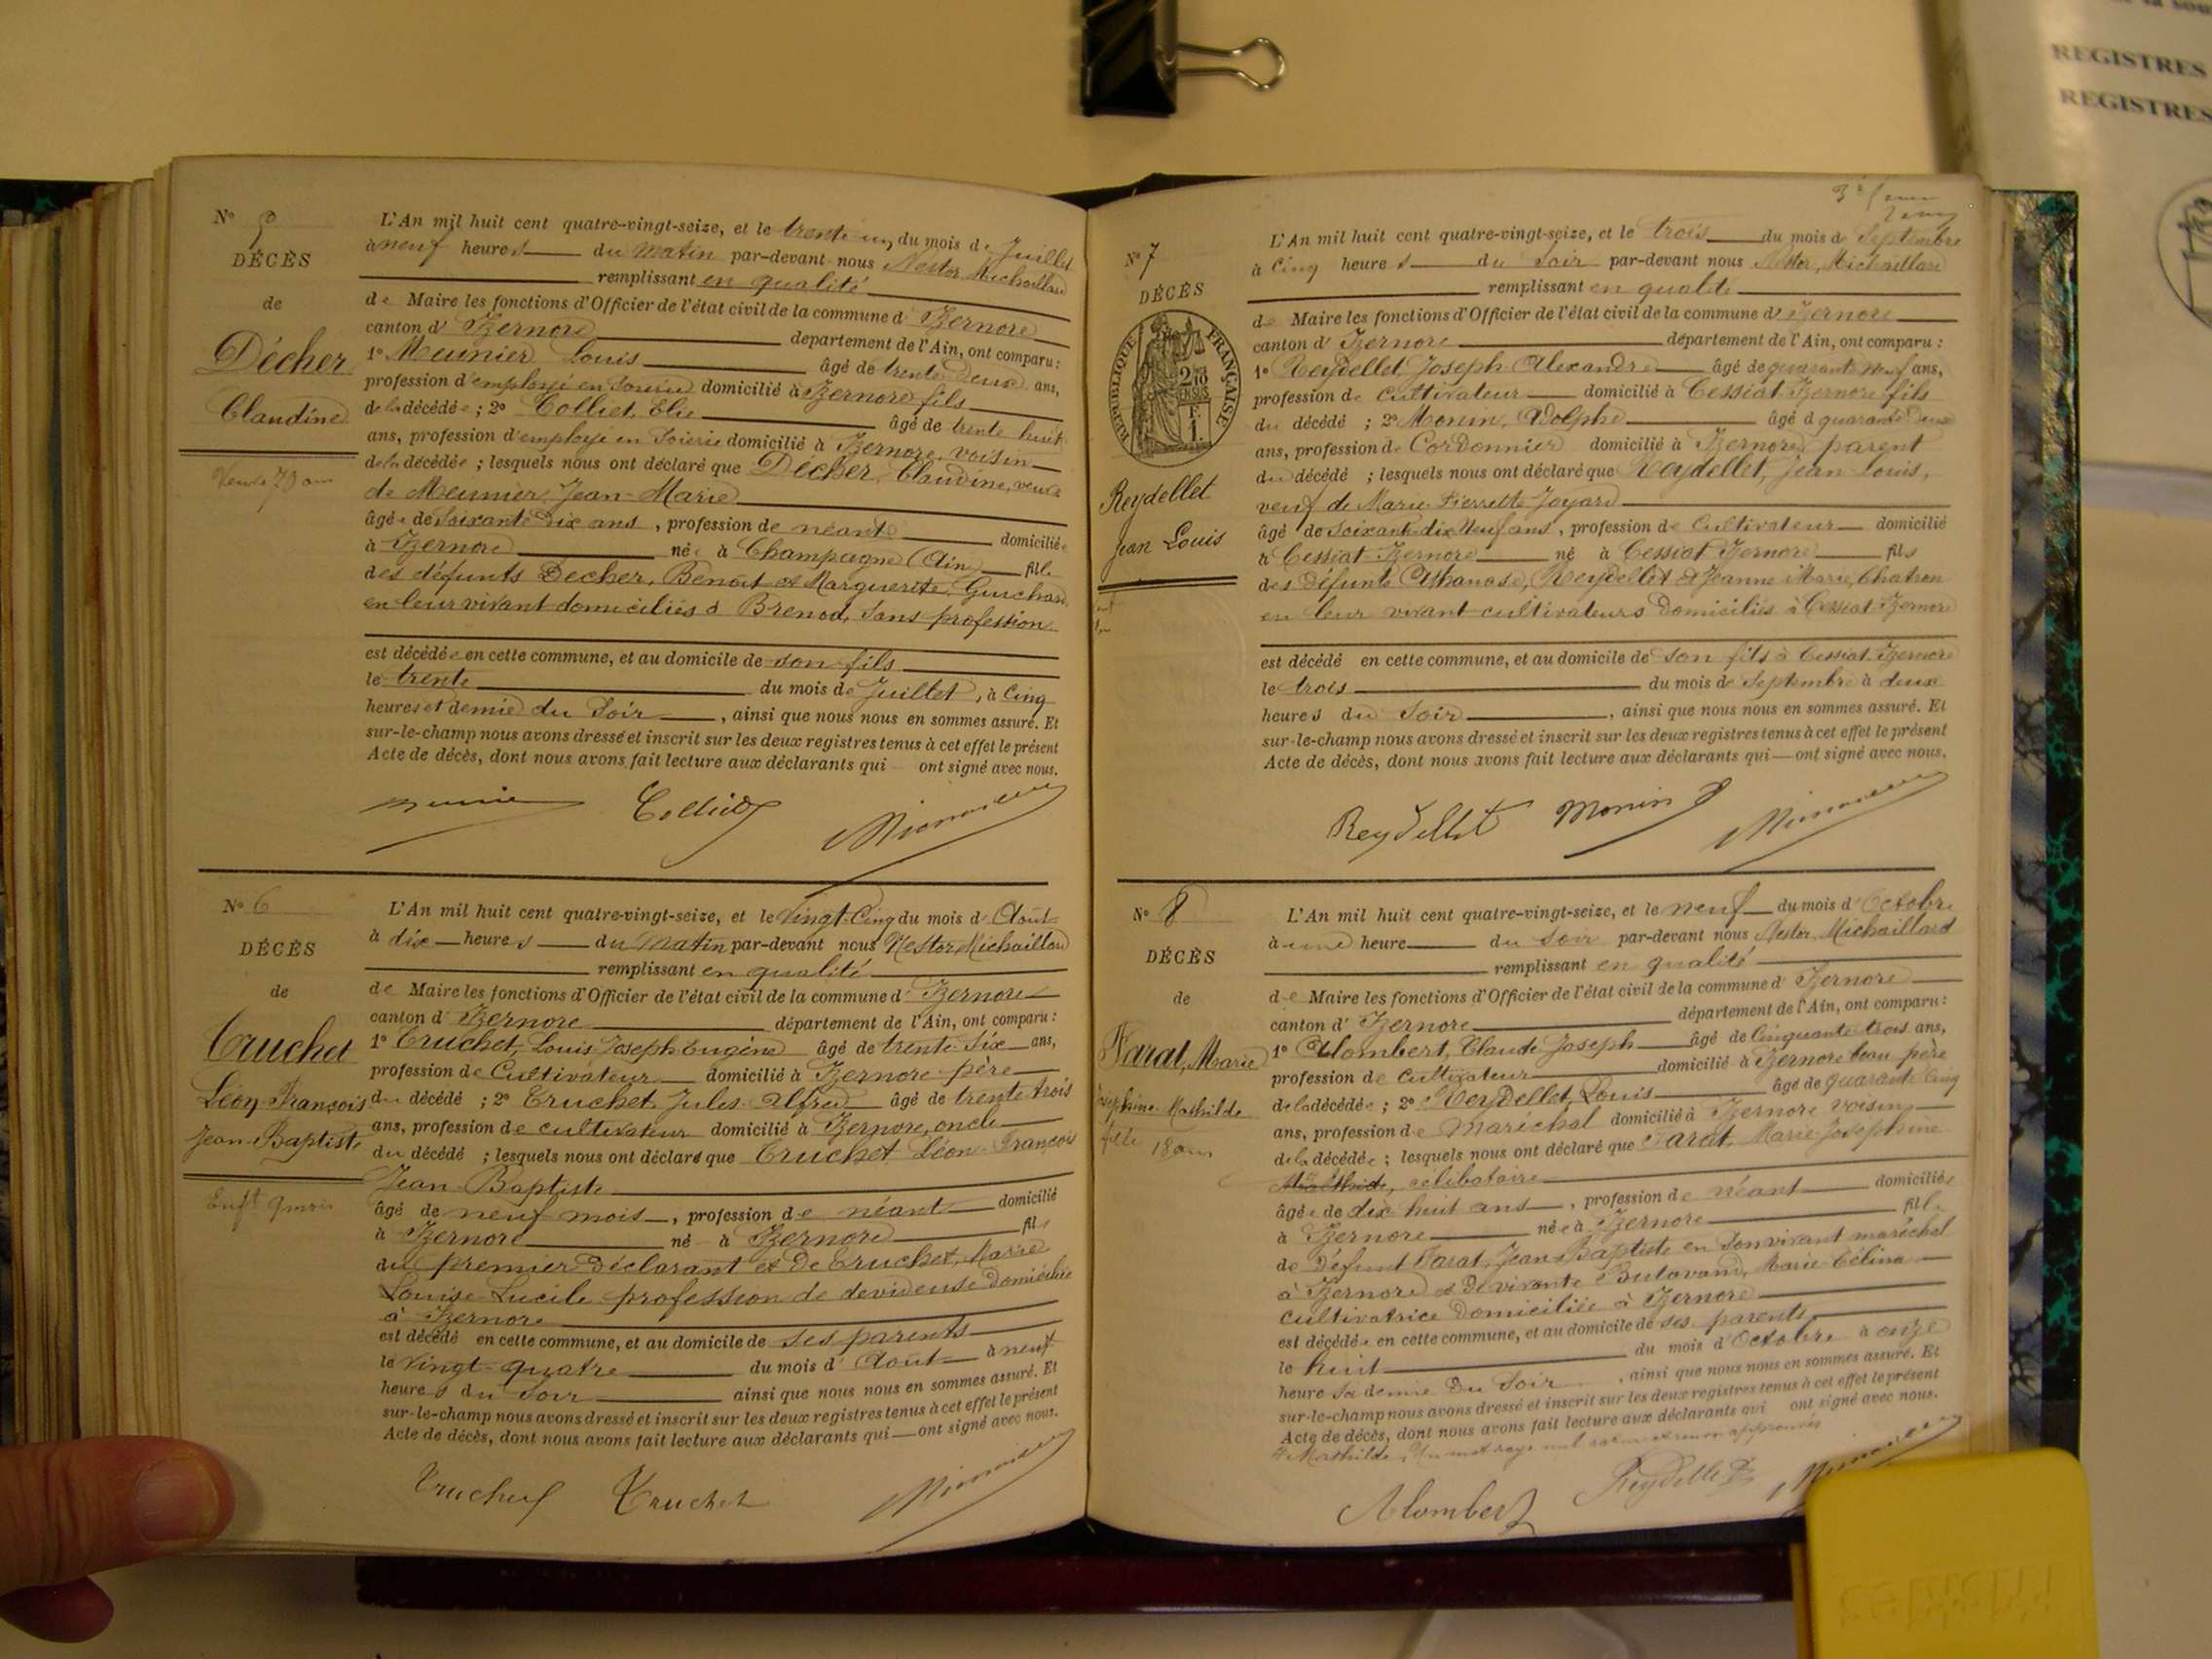 N° 5
DÉCÈS
de
Décher
Claudine
Veuve 70 ans
L'An mil huit cent quatre-vingt-seize, et le trente un du mois de Juillet
à neuf heures du matin par-devant nous Nestor Michaillard
remplissant en qualité
de Maire les fonctions d'Officier de l'état civil de la commune d'Izernore
canton d'Izernore département de l'Ain, ont comparu :
1° Meunier Louis âgé de trente deux ans,
profession d'employé en soierie domicilié à Izernore fils
de la décédée ; 2° Colliet, Elie âgé de trente huit
ans, profession d'employé en soierie domicilié à Izernore voisin
de la décédée ; lesquels nous ont déclaré que Décher, Claudine, veuve
de Meunier Jean-Marie
âgée de soixante dix ans, profession de néant domiciliée
à Izernore née à Champagne (Ain) fille
des défunts Décher, Benoit et Marguerite Guichard
en leur vivant domiciliés à Brenod, sans profession
est décédée en cette commune, et au domicile de son fils
le trente du mois de Juillet, à cinq
heures et demie du soir, ainsi que nous nous en sommes assuré. Et
sur-le-champ nous avons dressé et inscrit sur les deux registres tenus à cet effet le présent
Acte de décès, dont nous avons fait lecture aux déclarants qui ont signé avec nous.
Colliet
N° 6
DÉCÈS
de
Cruchet
Léon François
Jean-Baptiste
Enft 9 mois
L'An mil huit cent quatre-vingt-seize, et le vingt-cinq du mois d'Août
à dix heures du matin par-devant nous Nestor Michaillard
remplissant en qualité
de Maire les fonctions d'Officier de l'état civil de la commune d'Izernore
canton d'Izernore département de l'Ain, ont comparu :
1° Cruchet, Louis Joseph Eugène âgé de trente-six ans,
profession de Cultivateur domicilié à Izernore père
du décédé ; 2° Cruchet Jules Alfred âgé de trente trois
ans, profession de cultivateur domicilié à Izernore, oncle
du décédé ; lesquels nous ont déclaré que Cruchet Léon François
Jean-Baptiste
âgé de neuf mois, profession de néant domicilié
à Izernore né à Izernore fils
du premier déclarant et de Cruchet, Marie
Louise Lucile profession de devideuse domiciliée
à Izernore
est décédé en cette commune, et au domicile de ses parents
le vingt-quatre du mois d'Août à neuf
heures du soir ainsi que nous nous en sommes assuré. Et
sur-le-champ nous avons dressé et inscrit sur les deux registres tenus à cet effet le présent
Acte de décès, dont nous avons fait lecture aux déclarants qui ont signé avec nous.
Cruchet Cruchet
N° 7
DÉCÈS
RÉPUBLIQUE FRANÇAISE
Reydellet
Jean Louis
L'An mil huit cent quatre-vingt-seize, et le trois du mois de Septembre
à cinq heures du soir par-devant nous Nestor Michaillard
remplissant en qualité
de Maire les fonctions d'Officier de l'état civil de la commune d'Izernore
canton d'Izernore département de l'Ain, ont comparu :
1° Reydellet Joseph Alexandre âgé de quarante neuf ans,
profession de cultivateur domicilié à Cessiat-Izernore fils
du décédé ; 2° Monin, Adolphe âgé de quarante deux
ans, profession de Cordonnier domicilié à Izernore, parent
du décédé ; lesquels nous ont déclaré que Reydellet, Jean Louis,
veuf de Marie Pierrette Joyard
âgé de soixante dix neuf ans, profession de Cultivateur domicilié
à Cessiat-Izernore né à Cessiat Izernore fils
des défunts Athanase, Reydellet & Jeanne Marie Chatron
en leur vivant cultivateurs domiciliés à Cessiat-Izernore
est décédé en cette commune, et au domicile de son fils à Cessiat-Izernore
le trois du mois de Septembre à deux
heures du soir, ainsi que nous nous en sommes assuré. Et
sur-le-champ nous avons dressé et inscrit sur les deux registres tenus à cet effet le présent
Acte de décès, dont nous avons fait lecture aux déclarants qui ont signé avec nous.
Reydellet Monin
N° 8
DÉCÈS
de
Farat, Marie
Joséphine Mathilde
fille 18 ans
L'An mil huit cent quatre-vingt-seize, et le neuf du mois d'Octobre
à une heure du soir par-devant nous Nestor Michaillard
remplissant en qualité
de Maire les fonctions d'Officier de l'état civil de la commune d'Izernore
canton d'Izernore département de l'Ain, ont comparu :
1° Alombert, Claude Joseph âgé de cinquante trois ans,
profession de cultivateur domicilié à Izernore beau père
de la décédée ; 2° Reydellet, Louis âgé de quarante cinq
ans, profession de maréchal domicilié à Izernore voisin
de la décédée ; lesquels nous ont déclaré que Farat, Marie Joséphine
célibataire
âgée de dix huit ans, profession de néant domiciliée
à Izernore née à Izernore fille
de défunt Farat, Jean Baptiste en son vivant maréchal
à Izernore & de vivante Butavand, Marie Célina
cultivatrice domiciliée à Izernore
est décédée en cette commune, et au domicile de ses parents
le huit du mois d'Octobre à onze
heures et demie du soir, ainsi que nous nous en sommes assuré. Et
sur-le-champ nous avons dressé et inscrit sur les deux registres tenus à cet effet le présent
Acte de décès, dont nous avons fait lecture aux déclarants qui ont signé avec nous.
Mathilde, Un mot rayé nul
Alombert Reydellet
REGISTRES
REGISTRES